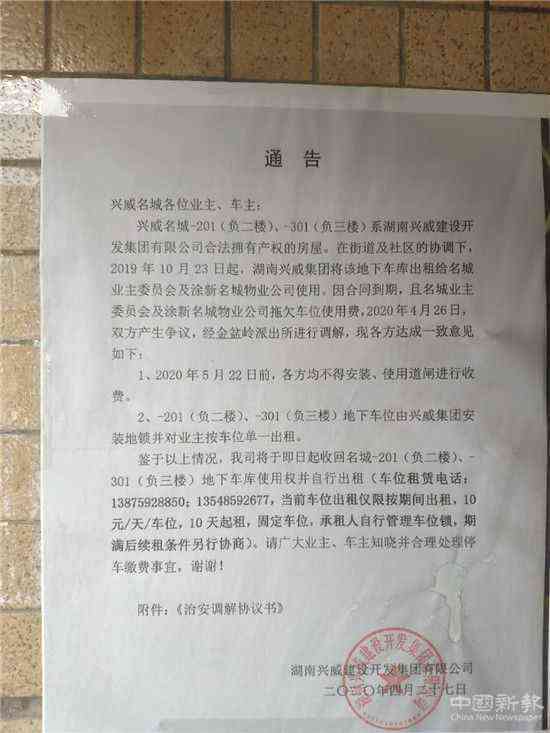 通 告
兴威名城各位业主、车主：
兴威名城-201（负二楼）、-301（负三楼）系湖南兴威建设开
发集团有限公司合法拥有产权的房屋。在街道及社区的协调下，
2019 年 10 月 23 日起，湖南兴威集团将该地下车库出租给名城
业主委员会及涂新名城物业公司使用。因合同到期，且名城业主
委员会及涂新名城物业公司拖欠车位使用费，2020 年 4 月 26 日，
双方产生争议，经金盆岭派出所进行调解，现各方达成一致意见
如下：
1、2020 年 5 月 22 日前，各方均不得安装、使用道闸进行收
费。
2、-201（负二楼）、-301（负三楼）地下车位由兴威集团安
装地锁并对业主按车位单一出租。
签于以上情况，我司将于即日起收回名城-201（负二楼）、-
301（负三楼）地下车库使用权并自行出租（车位租赁电话：
13875928850；13548592677，当前车位出租仅限按期间出租，10
元/天/车位，10 天起租，固定车位，承租人自行管理车位锁，期
满后续租条件另行协商）。请广大业主、车主知晓并合理处理停
车缴费事宜，谢谢！
附件：《治安调解协议书》
湖南兴威建设开发集团有限公司
二〇二〇年四月二十七日
中國新報
China New Newspaper